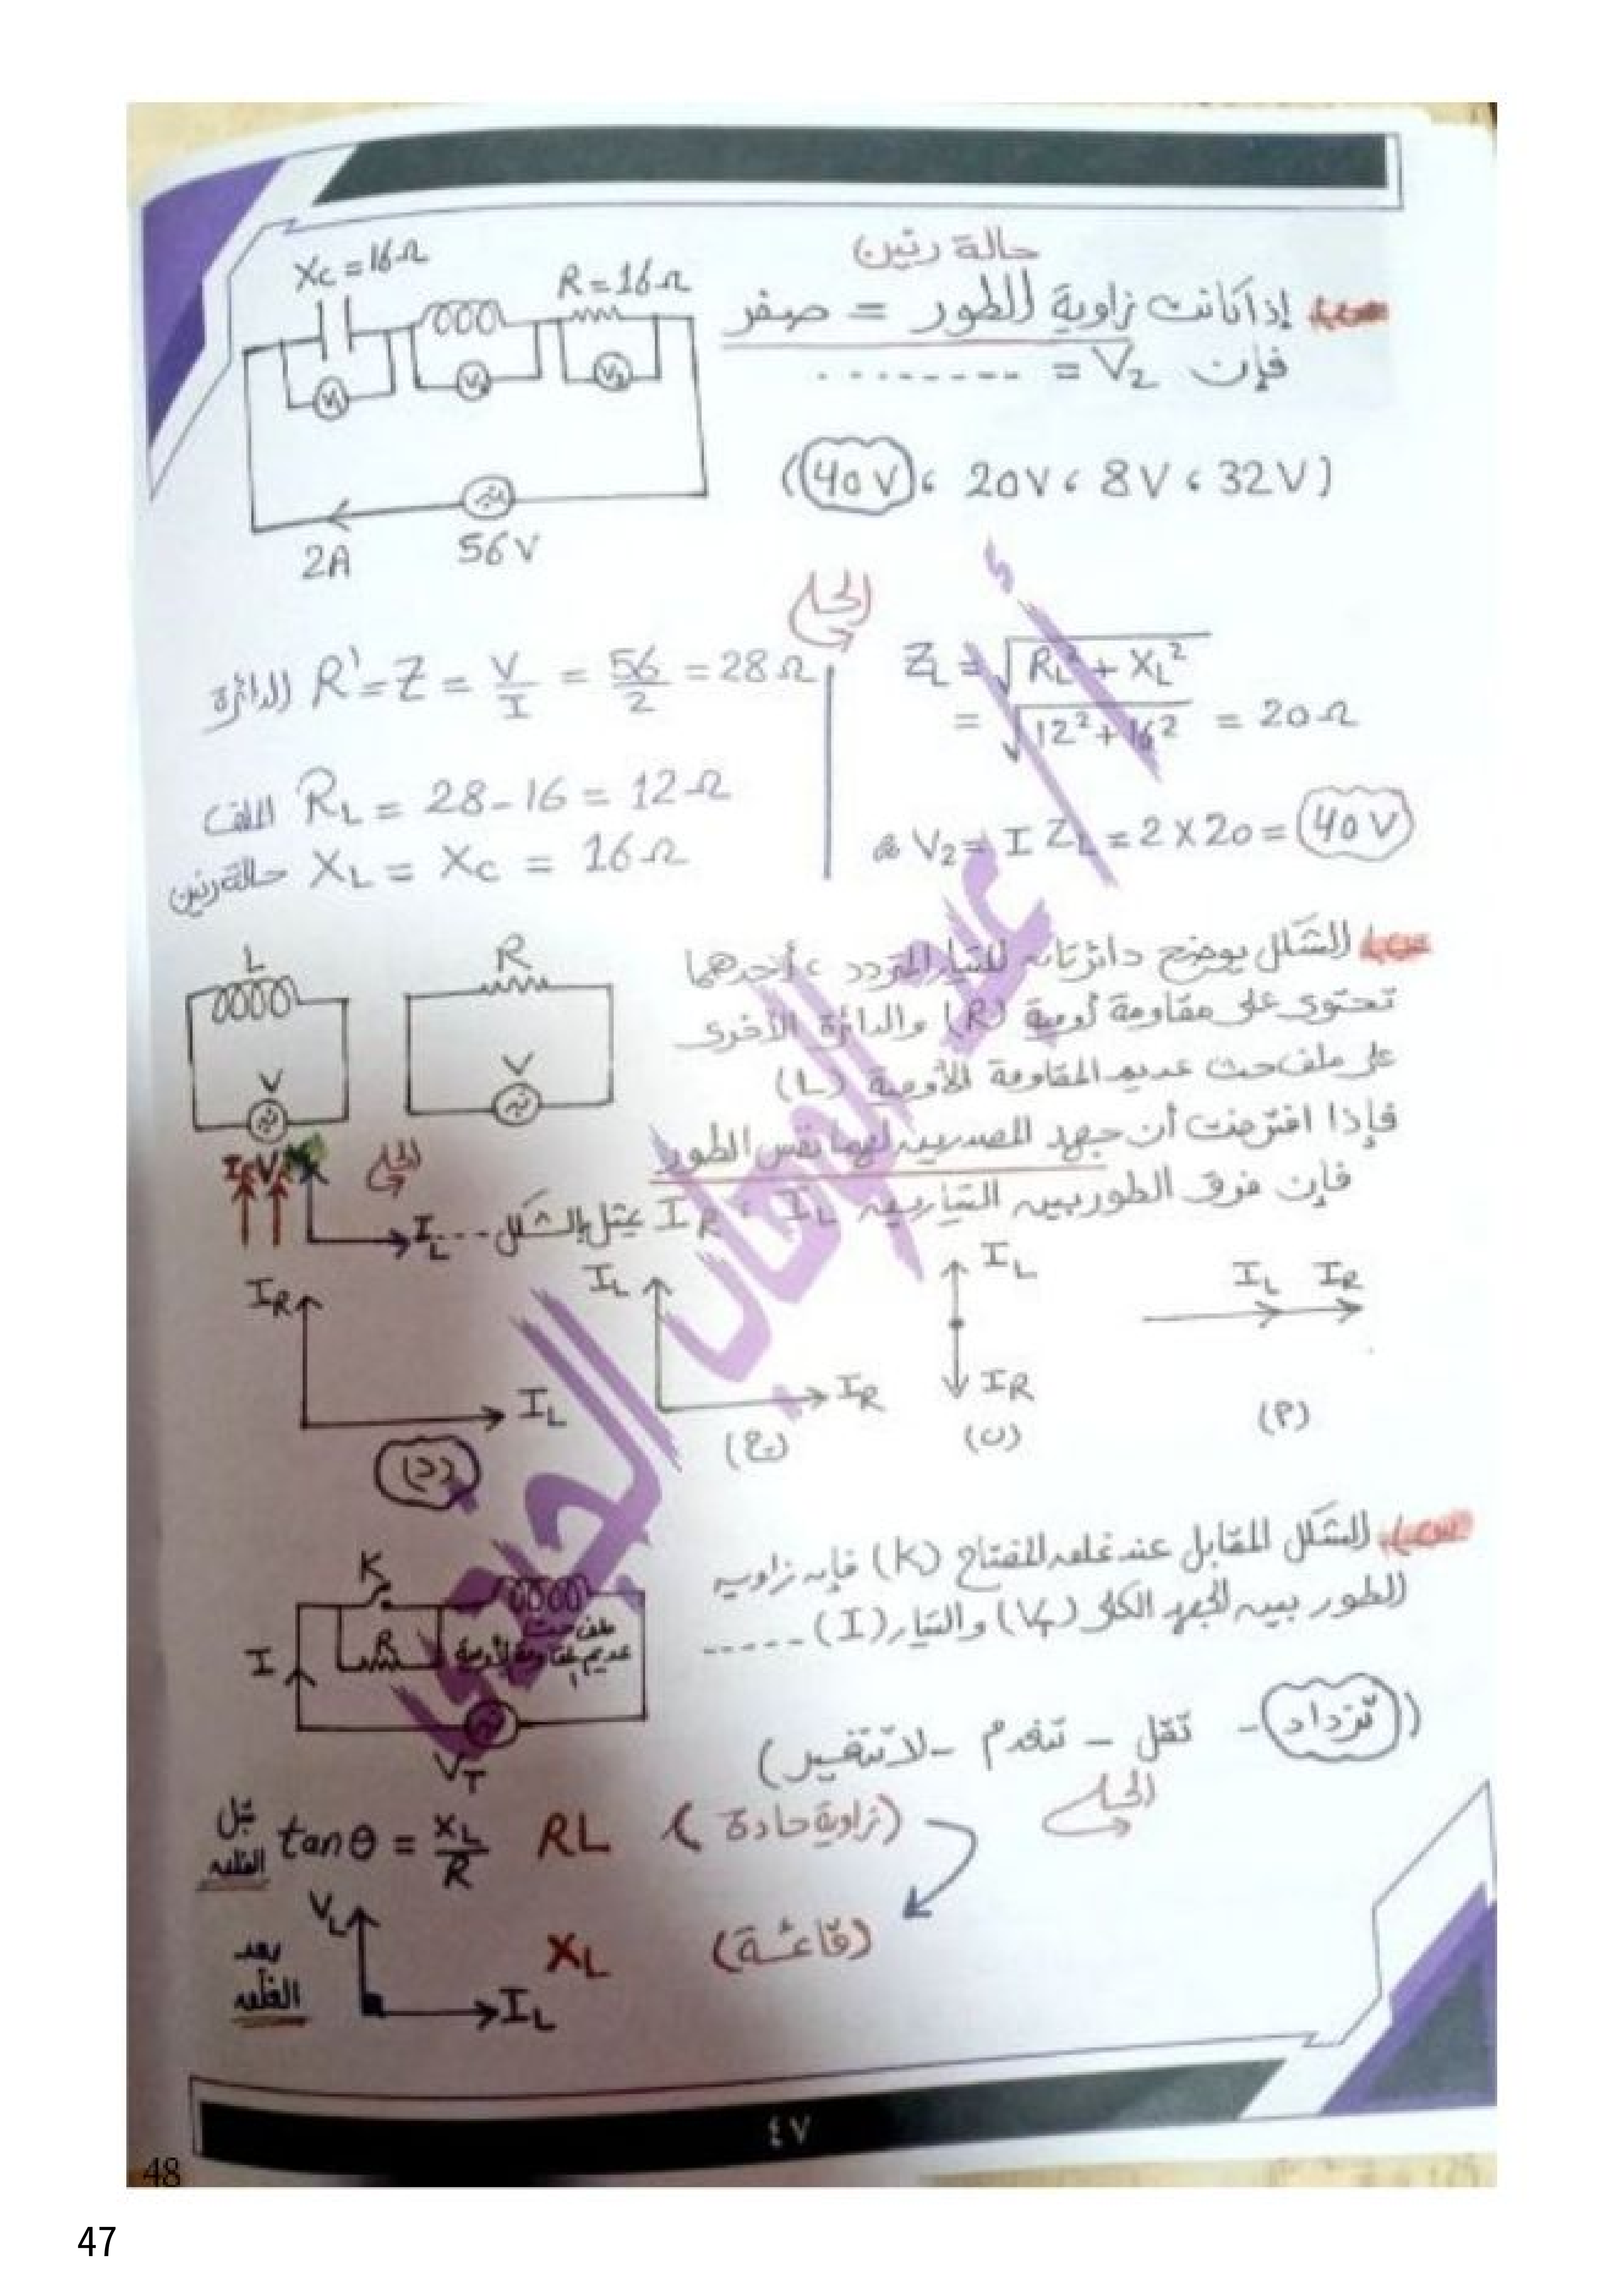 حالة رنين
س١٠ إذا كانت زاوية الطور = صفر
فإن V₂ = ........
(40V ، 20V ، 8V ، 32V)
Xc = 16Ω
R = 16Ω
V₁
V₂
V₃
2A
56V
الحل
الدائرة R' = Z = V/I = 56/2 = 28Ω
الملف R_L = 28 - 16 = 12Ω
حالة رنين X_L = X_C = 16Ω
Z_L = √(R_L² + X_L²)
= √(12² + 16²) = 20Ω
∴ V₂ = I Z_L = 2 × 20 = 40V
الشكل يوضح دائرتان للتيار المتردد ، أحدهما
تحتوى على مقاومة أومية (R) والدائرة الأخرى
على ملف حث عديم المقاومة الأومية (L)
فإذا افترضت أن جهد المصدرين لهما نفس الطور
فإن فرق الطور بين التيارين I_L ، I_R يمثل بالشكل ....
L
V
R
V
الحل
I_L
I_L I_R
(أ)
I_L
I_R
(ب)
I_L
I_R
(ج)
I_R
I_L
(د)
الشكل المقابل عند غلق المفتاح (K) فإن زاوية
الطور بين الجهد الكلى (V_T) والتيار (I) .....
(تزداد - تقل - تنعدم - لا تتغير)
K
R
I
ملف حث
عديم المقاومة الأومية
V_T
الحل
قبل الغلق tanθ = X_L/R RL (زاوية حادة)
بعد الغلق V_L I_L X_L (قائمة)
٤٧
48
47